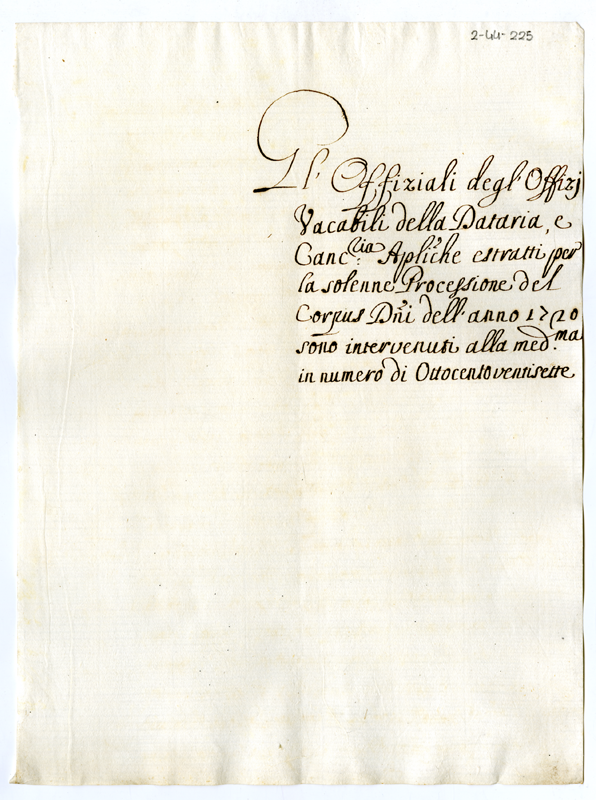 2-44-225
Gl' Offiziali degl' Offizj
Vacabili della Dataria, e
Canc:ria Apliche estratti per
la solenne Processione del
Corpus Dñi dell' anno 1720
sono intervenuti alla med:ma
in numero di Ottocentoventisette